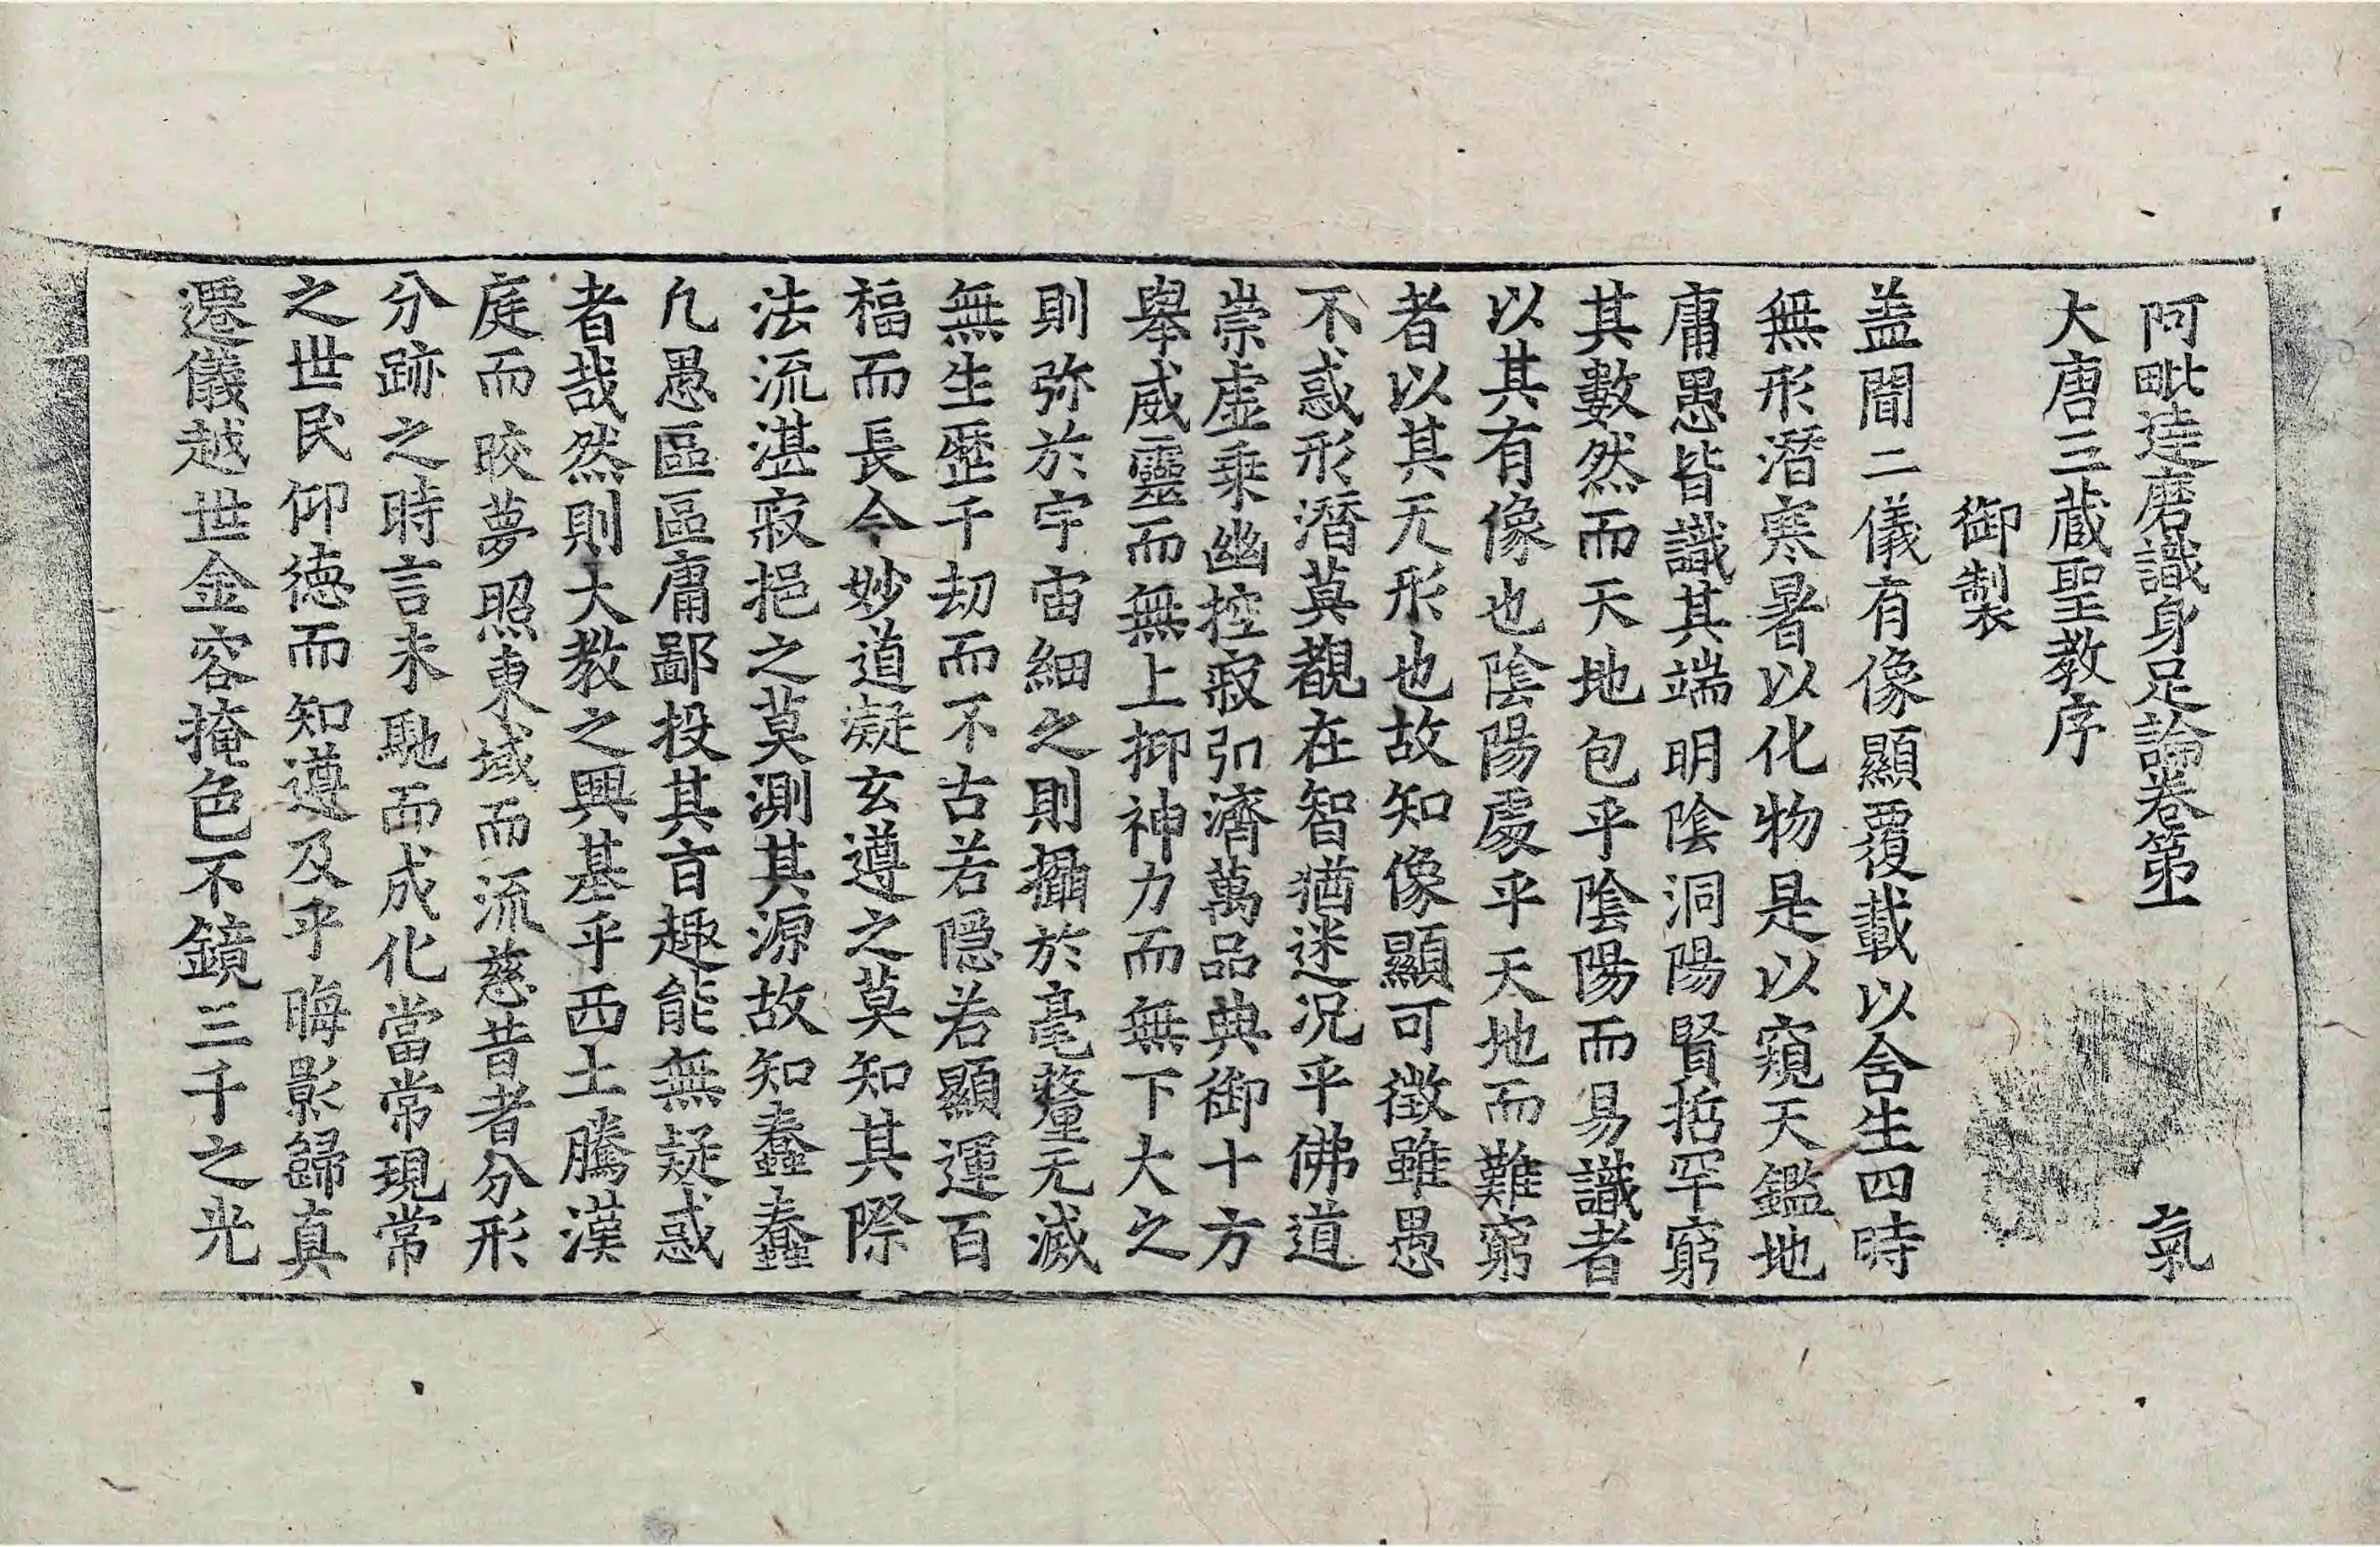 阿毗達磨識身足論卷第一 氣
大唐三蔵聖教序
御製
盖聞二儀有像顯覆載以含生四時
無形潛寒暑以化物是以窺天鑑地
庸愚皆識其端明陰洞陽賢哲罕窮
其數然而天地包乎陰陽而易識者
以其有像也陰陽處乎天地而難窮
者以其无形也故知像顯可徵雖愚
不惑形潛莫覩在智猶迷况乎佛道
崇虛乗幽控寂弘濟萬品典御十方
舉威靈而無上抑神力而無下大之
則弥於宇宙細之則攝於毫釐无滅
無生歷千劫而不古若隠若顯運百
福而長今妙道凝玄遵之莫知其際
法流湛寂挹之莫測其源故知蠢蠢
凡愚區區庸鄙投其旨趣能無疑惑
者哉然則大教之興基乎西土騰漢
庭而皎夢照東域而流慈昔者分形
分跡之時言未馳而成化當常現常
之世民仰徳而知遵及乎晦影歸真
遷儀越世金容掩色不鏡三千之光